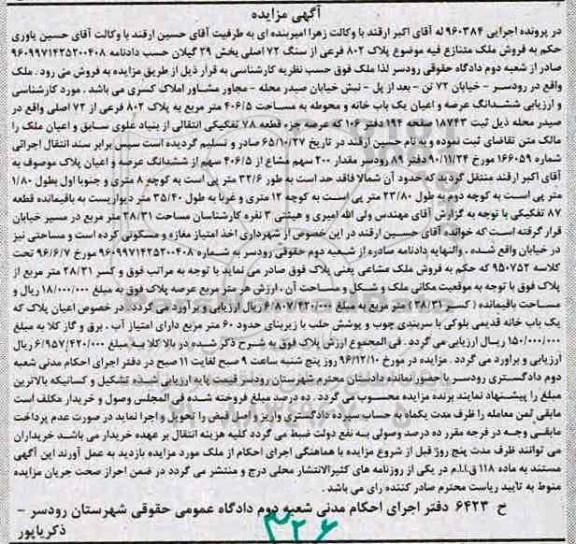 آگهی مزایده
در پرونده اجرایی ۹۶۰۳۸۴ له آقای اکبر ارقند با وکالت زهرا امیربنده ای به ظرفیت آقای حسین ارقند با وکالت آقای حسین یاوری
حکم به فروش ملک متنازع فیه موضوع پلاک ۸۰۲ فرعی از سنگ ۷۲ اصلی بخش ۲۹ گیلان حسب دادنامه ۹۶۰۹۹۷۱۴۲۵۲۰۰۴۰۸
صادر از شعبه دوم دادگاه حقوقی رودسر لذا ملک فوق حسب نظریه کارشناسی به قرار ذیل از طریق مزایده به فروش می رود. ملک
واقع در رودسر - خیابان ۷۲ تن - بعد از پل - نبش خیابان صیدر محله - مجاور مشاور املاک کسری می باشد. مورد کارشناسی
و ارزیابی ششدانگ عرصه و اعیان یک باب خانه و محوطه به مساحت ۴۰۶/۵ متر مربع به پلاک ۸۰۲ فرعی از ۷۲ اصلی واقع در
صیدر محله ذیل ثبت ۱۸۷۴۳ صفحه ۱۹۴ دفتر ۱۰۶ که عرصه جزء قطعه ۷۸ تفکیکی انتقالی از بنیاد علوی سابق و اعیان ملک را
مالک متن تقاضای ثبت نموده و به نام حسین ارقند در تاریخ ۶۵/۱۰/۲۷ صادر و تسلیم گردیده است سپس برابر سند انتقال اجرائی
شماره ۱۶۶۰۵۹ مورخ ۹۰/۱۱/۲۴ دفتر ۸۹ رودسر مقدار ۲۰۰ سهم مشاع از ۴۰۶/۵ سهم از ششدانگ عرصه و اعیان پلاک موصوف به
آقای اکبر ارقند منتقل گردید که حدود آن شمالا فاقد حد است به طور ۳۲/۶ متر پی است به کوچه ۸ متری و جنوبا اول بطول ۱/۸۰
متر پی است به کوچه دوم به طول ۲۳/۸۰ متر پی است به کوچه ۱۲ متری و غربا به طول ۳۵/۴۰ متر دیواریست به باقیمانده قطعه
۸۷ تفکیکی با توجه به گزارش آقای مهندس ولی الله امیری و هیئتی ۳ نفره کارشناسان مساحت ۲۸/۳۱ متر مربع در مسیر خیابان
قرار گرفته است که خوانده آقای حسین ارقند در این خصوص از شهرداری اخذ امتیاز مغازه و مسکونی کرده است و مساحتی نیز
در خیابان واقع شده. والنهایه دادنامه صادره از شعبه دوم حقوقی رودسر به شماره ۹۶۰۹۹۷۱۴۲۵۲۰۰۴۰۸ مورخ ۹۶/۶/۷ تحت
کلاسه ۹۵۰۷۵۲ که حکم به فروش ملک مشاعی یعنی پلاک فوق صادر می نماید با توجه به مراتب فوق و کسر ۲۸/۳۱ متر مربع از
پلاک فوق با توجه به موقعیت مکانی ملک و شکل و مساحت آن، ارزش هر متر مربع عرصه پلاک فوق به مبلغ ۱۸/۰۰۰/۰۰۰ ریال و
مساحت باقیمانده (کسر ۲۸/۳۱) متر مربع به مبلغ ۶/۸۰۷/۴۲۰/۰۰۰ ریال ارزیابی و برآورد می گردد. در خصوص اعیان پلاک که
یک باب خانه قدیمی بلوکی با سربندی چوب و پوشش حلب با زیربنای حدود ۶۰ متر مربع دارای امتیاز آب، برق و گاز کلا به مبلغ
۱۵۰/۰۰۰/۰۰۰ ریال ارزیابی می گردد. فی المجموع ارزش پلاک فوق به شرح ذکر شده در بالا کلا به مبلغ ۶/۹۵۷/۴۲۰/۰۰۰ ریال
ارزیابی و برآورد می گردد. مزایده در مورخ ۹۶/۱۲/۱۰ روز پنج شنبه ساعت ۹ صبح لغایت ۱۱ صبح در دفتر اجرای احکام مدنی شعبه
دوم دادگستری رودسر با حضور نماینده دادستان محترم شهرستان رودسر قیمت پایه ارزیابی شده تشکیل و کسانیکه بالاترین
مبلغ را پیشنهاد نمایند برنده مزایده محسوب می گردد. ده درصد مبلغ فروخته شده فی المجلس وصول و خریدار مکلف است
مابقی ثمن معامله را ظرف مدت یکماه به حساب سپرده دادگستری واریز و اصل فیش را تحویل و اجرا نماید در صورت عدم پرداخت
مابقی وجه در فرجه مقرر ده درصد وصولی به نفع دولت ضبط می گردد کلیه هزینه انتقال بر عهده خریدار می باشد خریداران
می توانند ظرف مدت پنج روز قبل از شروع مزایده با هماهنگی اجرای احکام از ملک مورد مزایده بازدید به عمل آورند این آگهی
مستند به ماده ۱۱۸ ق.ا.ا.م در یکی از روزنامه های کثیرالانتشار محلی درج و منتشر می گردد در ضمن احراز صحت جریان مزایده
منوط به تایید ریاست محترم صادر کننده رای می باشد.
ح ۶۴۲۳ دفتر اجرای احکام مدنی شعبه دوم دادگاه عمومی حقوقی شهرستان رودسر -
ذکریاپور
۳۲۶